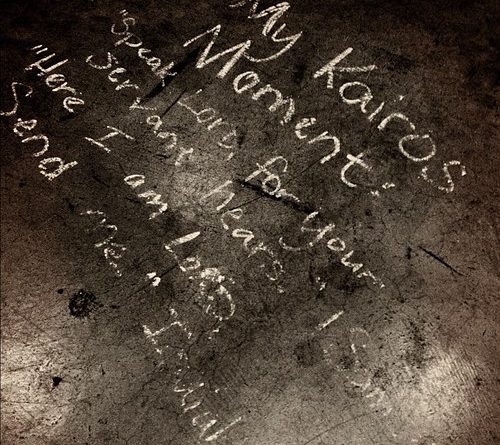 My Kairos
Moment:
"Speak Lord, for your
servant hears." 1 Sam
"Here I am Lord.
Send me."